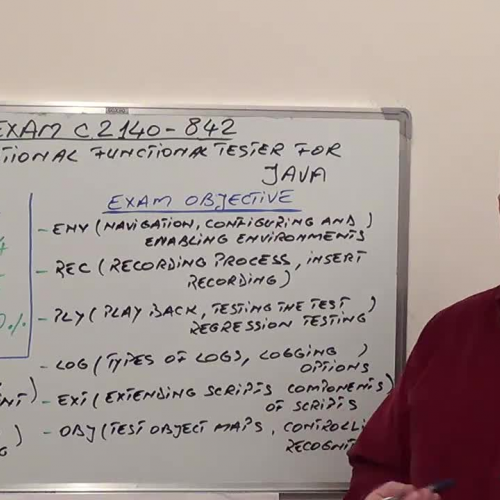 EXAM C2140-842
TIONAL FUNCTIONAL TESTER FOR
JAVA
EXAM OBJECTIVE
- ENV (NAVIGATION, CONFIGURING AND)
ENABLING ENVIRONMENTS
- REC (RECORDING PROCESS, INSERT
RECORDING)
0%
- PLY (PLAY BACK, TESTING THE TEST)
REGRESSION TESTING
- LOG (TYPES OF LOGS, LOGGING)
OPTIONS
NT)
- EXT (EXTENDING SCRIPTS COMPONENTS)
OF SCRIPTS
- OBJ (TEST OBJECT MAPS, CONTROLLI
RECOGNIT